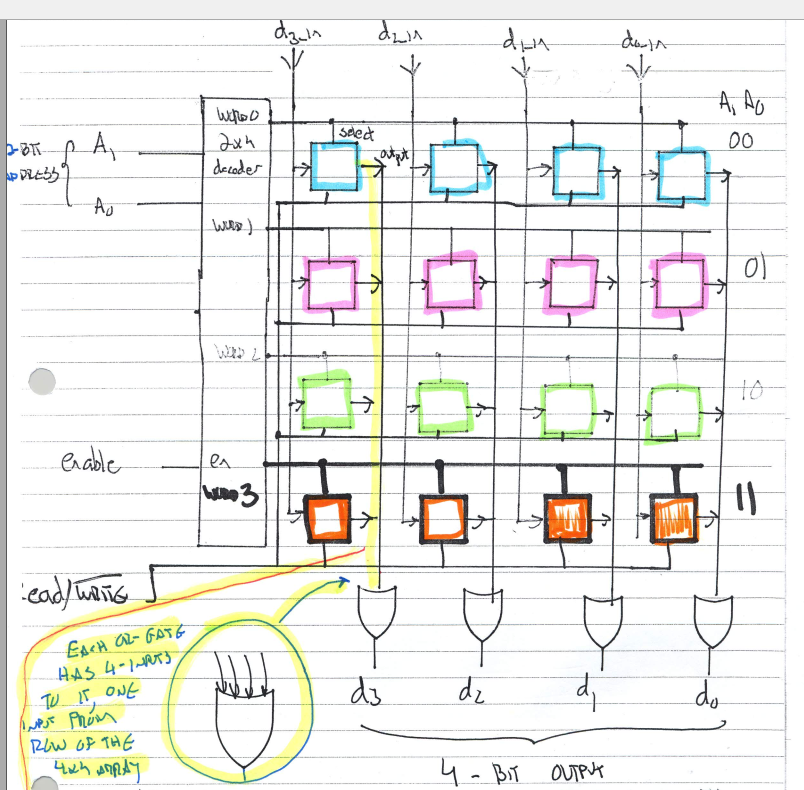 d3_in d2_in d1_in d0_in
A1 A0
word 0
select
00
2-BIT
A1
2x4
decoder
output
A0
word 1
01
word 2
10
enable
en
word 3
11
Read/WRITE
EACH OR-GATE
HAS 4-INPUTS
TO IT, ONE
INPUT FROM
ROW OF THE
4x4 ARRAY
d3 d2 d1 d0
4-BIT OUTPUT